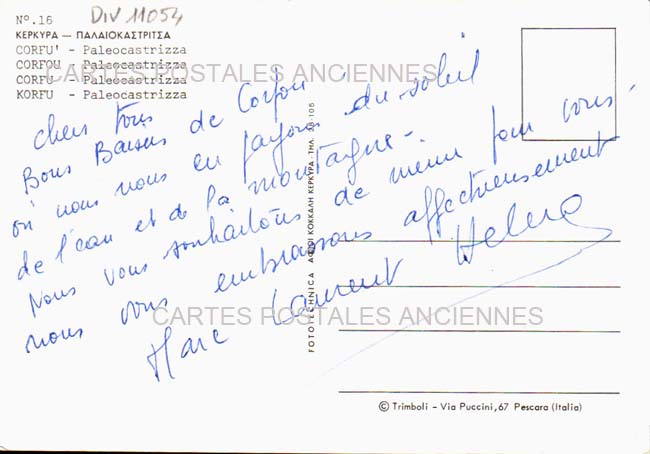 Nº.16 DIV 11054
ΚΕΡΚΥΡΑ — ΠΑΛΑΙΟΚΑΣΤΡΙΤΣΑ
CORFU' - Paleocastrizza
CORFOU - Paleocastrizza
CORFU - Paleocastrizza
KORFU - Paleocastrizza
CARTES POSTALES ANCIENNES
Chers tous
Bons Baisers de Corfou
où nous nous en payons du soleil
de l'eau et de la montagne.
Nous vous souhaitons de même pour vous
nous vous embrassons affectueusement
Marc Laurent Helene
CARTES POSTALES ANCIENNES
FOTOTECHNICA ΑΦΟΙ ΚΟΚΚΑΛΗ ΚΕΡΚΥΡΑ - ΤΗΛ.
© Trimboli - Via Puccini, 67 Pescara (Italia)